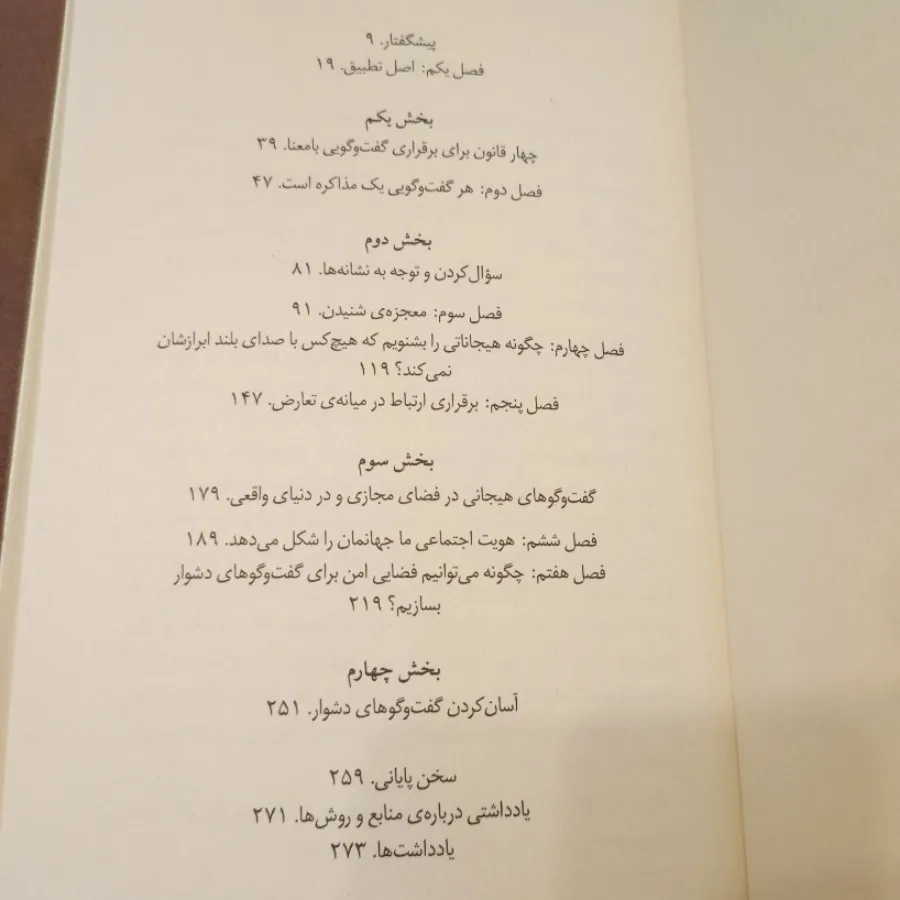 پیشگفتار. ۹
فصل یکم: اصل تطبیق. ۱۹
بخش یکم
چهار قانون برای برقراری گفت‌وگویی بامعنا. ۳۹
فصل دوم: هر گفت‌وگویی یک مذاکره است. ۴۷
بخش دوم
سؤال‌کردن و توجه به نشانه‌ها. ۸۱
فصل سوم: معجزه‌ی شنیدن. ۹۱
فصل چهارم: چگونه هیجاناتی را بشنویم که هیچ‌کس با صدای بلند ابرازشان
نمی‌کند؟ ۱۱۹
فصل پنجم: برقراری ارتباط در میانه‌ی تعارض. ۱۴۷
بخش سوم
گفت‌وگوهای هیجانی در فضای مجازی و در دنیای واقعی. ۱۷۹
فصل ششم: هویت اجتماعی ما جهانمان را شکل می‌دهد. ۱۸۹
فصل هفتم: چگونه می‌توانیم فضایی امن برای گفت‌وگوهای دشوار
بسازیم؟ ۲۱۹
بخش چهارم
آسان‌کردن گفت‌وگوهای دشوار. ۲۵۱
سخن پایانی. ۲۵۹
یادداشتی درباره‌ی منابع و روش‌ها. ۲۷۱
یادداشت‌ها. ۲۷۳